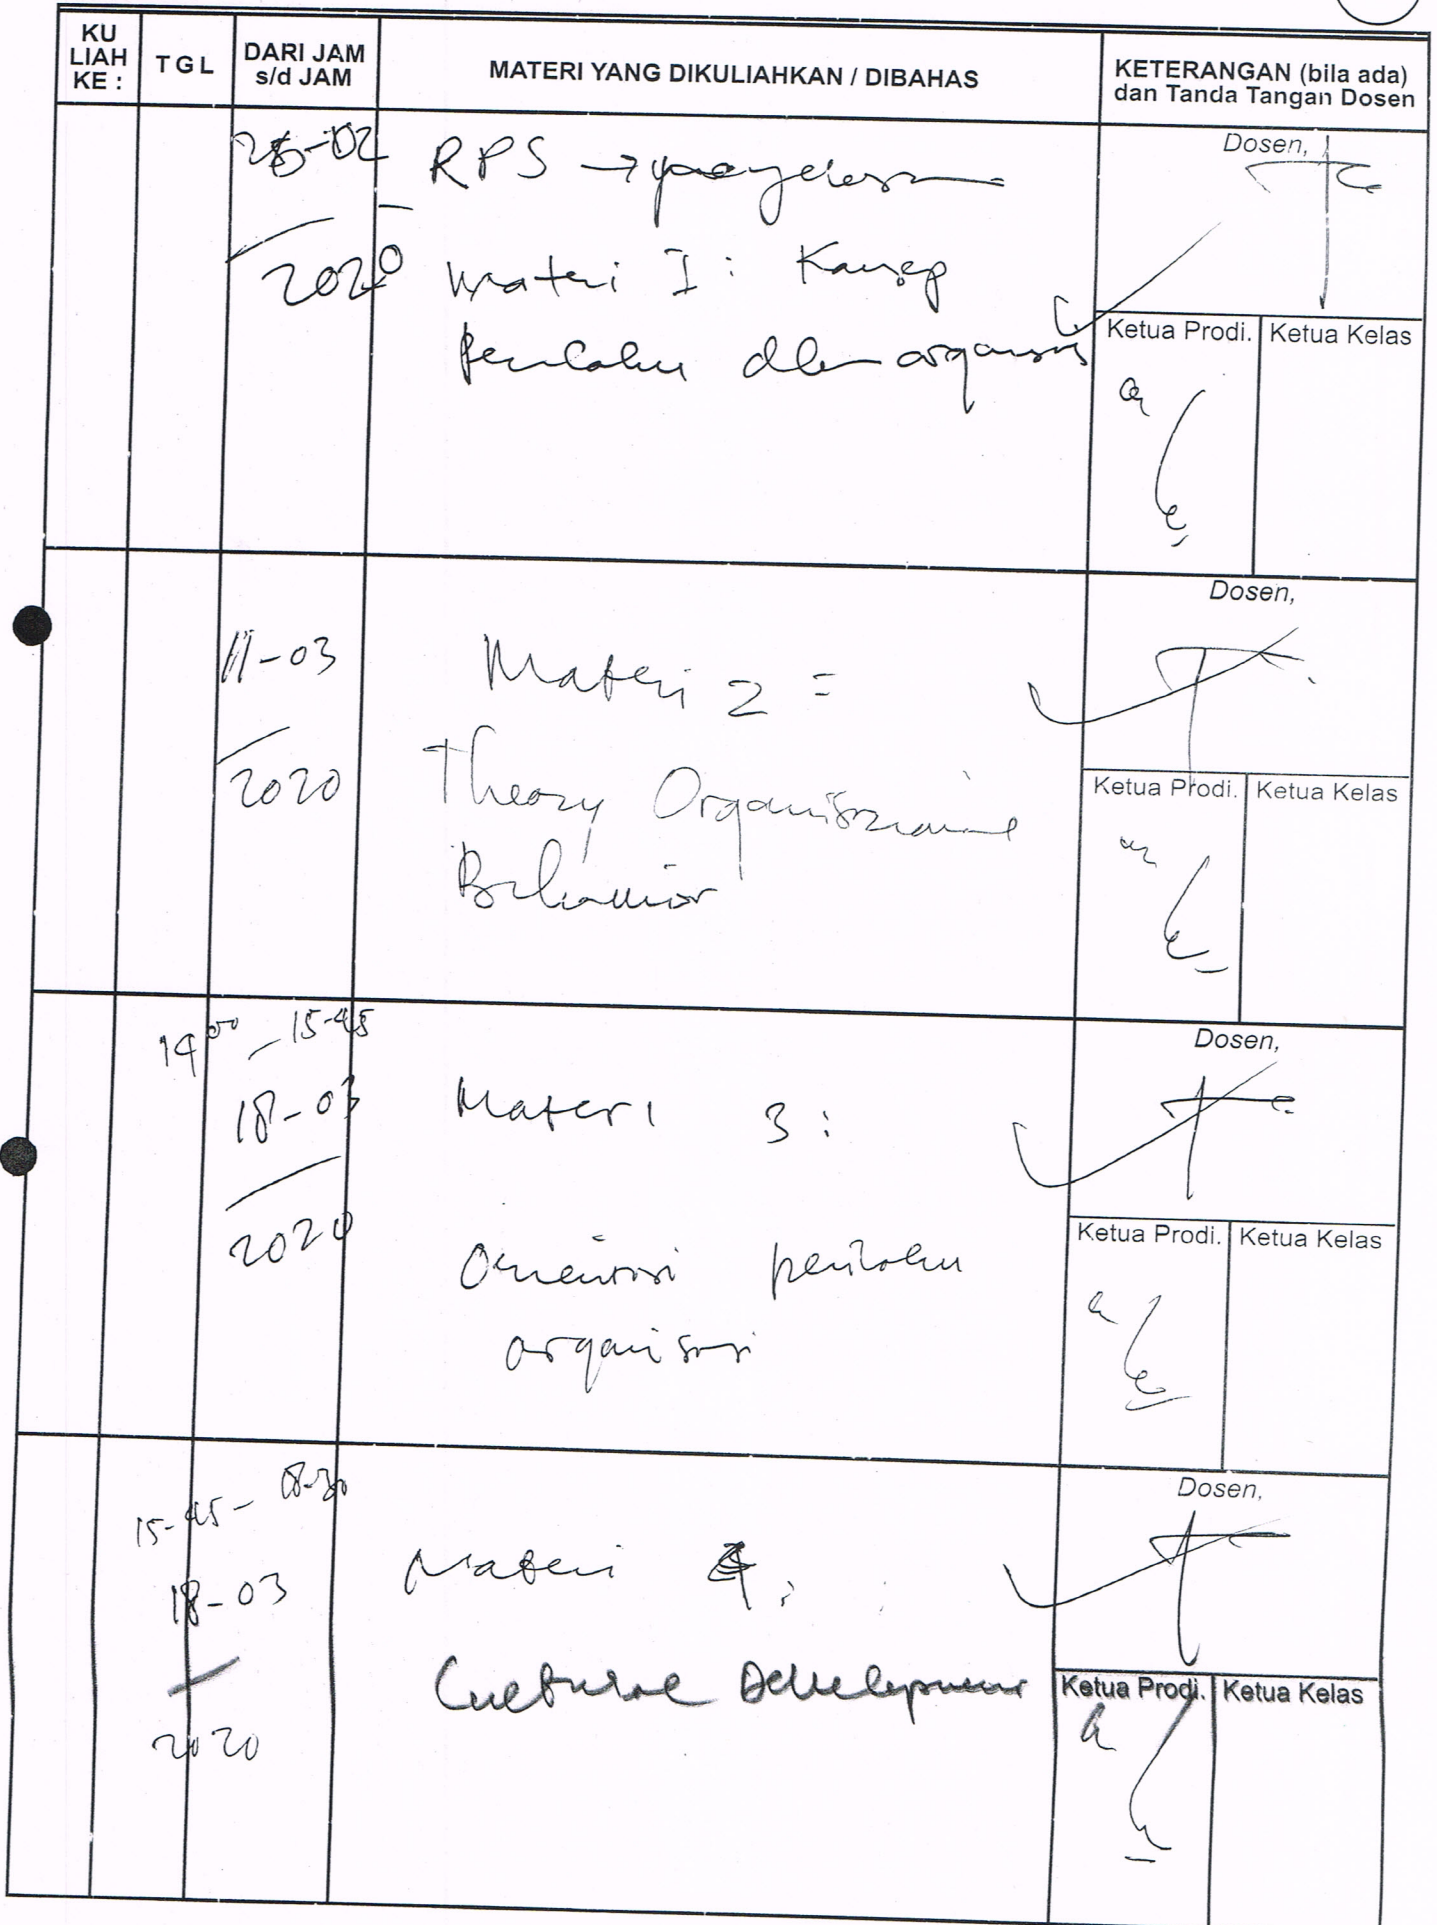 KU
LIAH
KE :
TGL
DARI JAM
s/d JAM
MATERI YANG DIKULIAHKAN / DIBAHAS
KETERANGAN (bila ada)
dan Tanda Tangan Dosen
-02
2020
RPS →
Materi I : Konsep
Perilaku dlm organisasi
Dosen,
Ketua Prodi. Ketua Kelas
11-03
2020
Materi 2 =
Theory
Behavior
Dosen,
Ketua Prodi. Ketua Kelas
14.00 - 15-45
18-03
2020
Materi 3 :
Orientasi perilaku
organisasi
Dosen,
Ketua Prodi. Ketua Kelas
15-45 -
18-03
2020
Materi 4 :
Cultural Development
Dosen,
Ketua Prodi. Ketua Kelas